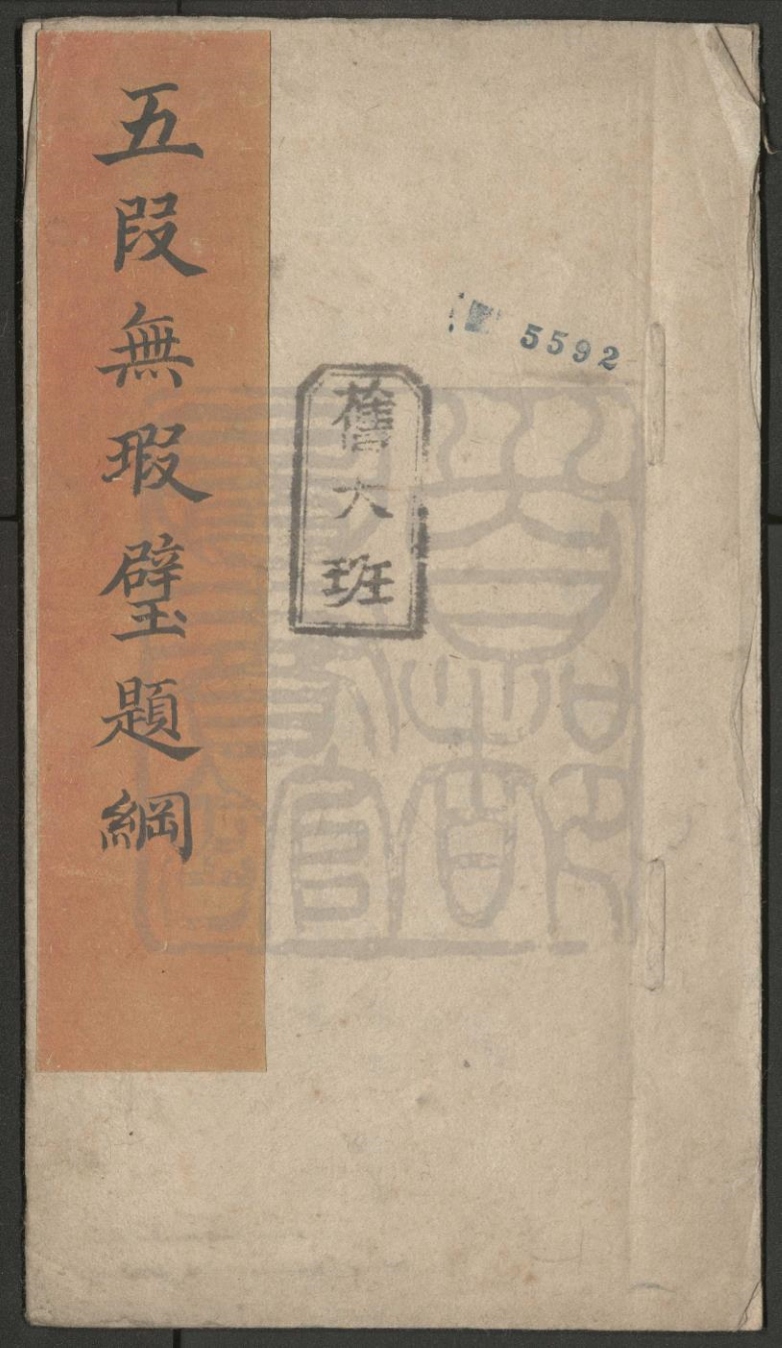 五段無瑕璧題綱
舊大班
5592